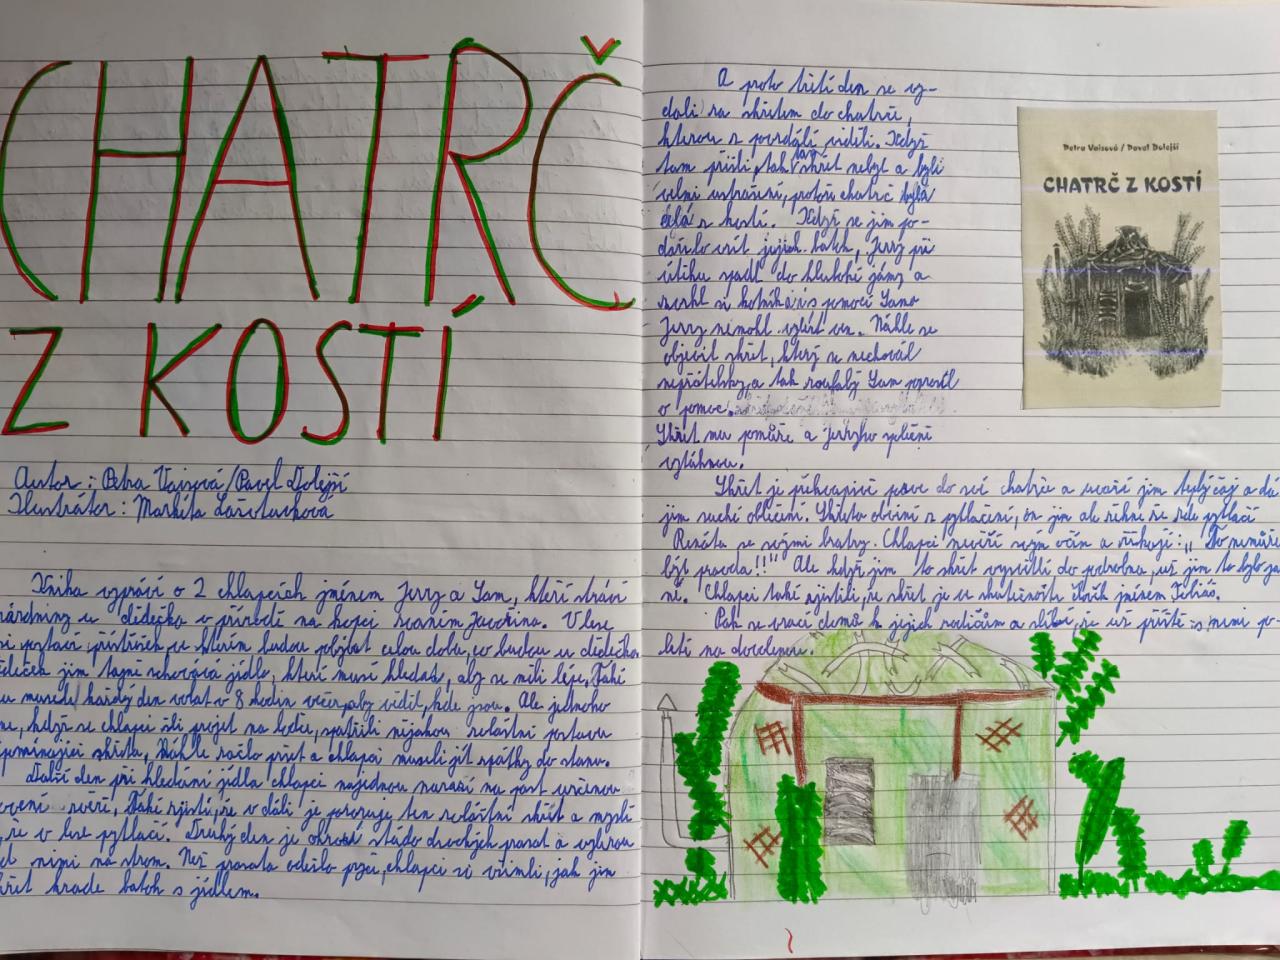 CHATRČ
Z KOSTÍ
Autor: Petra Vaisová/Pavel Dolejší
Ilustrátor: Markéta
Kniha vypráví o 2 chlapcích jménem Jerry a Sam, kteří tráví
prázdniny u dědečka v přírodě na kopci zvaném Javořina. V lese
si postaví přístřešek, ve kterém budou pobývat celou dobu, co budou u dědečka.
Dědeček jim tajně schovává jídlo, které musí hledat, aby se měli lépe. Také
mu museli každý den volat v 8 hodin večer, aby věděl, kde jsou. Ale jednoho
dne, když se chlapci šli projet na loďce, spatřili nějakou zvláštní postavu
připomínající skřeta. Náhle začalo pršet a chlapci museli jít zpátky do stanu.
Další den při hledání jídla chlapci najednou narazí na past určenou
k lovení zvěře. Také zjistí, že v dáli je pozoruje ten zvláštní skřet a myslí
si, že v lese pytlačí. Druhý den je ohrozí stádo divokých prasat a vylezou
před nimi na strom. Než prasata odešla pryč, chlapci si všimli, jak jim
skřet krade batoh s jídlem.
A proto třetí den se vy-
dali za skřetem do chatrče,
kterou z povzdálí viděli. Když
tam přišli, tak tam skřet nebyl a byli
velmi vystrašení, protože chatrč byla
celá z kostí. Když se jim po-
dařilo vzít jejich batoh, Jerry při
útěku spadl do hluboké jámy a
zvrhl si kotník a i s pomocí Sama
Jerry nemohl vylézt ven. Náhle se
objevil skřet, který se nechoval
nepřátelsky, a tak zoufalý Sam poprosil
o pomoc.
Skřet mu pomůže a Jerryho společně
vytáhnou.
Skřet je překvapivě pozve do své chatrče a uvaří jim teplý čaj a dá
jim suché oblečení. Skřeta obviní z pytlačení, on jim ale řekne, že zde pytlačí
Renáta se svými bratry. Chlapci nevěří svým očím a říkají: „To nemůže
být pravda!!!" Ale když jim to skřet vysvětlí do podrobna, už jim to bylo jas-
né. Chlapci také zjistili, že skřet je ve skutečnosti člověk jménem Tobiáš.
Pak se vrací domů k jejich rodičům a slíbí, že už příště s nimi po-
letí na dovolenou.
Petra Vaisová / Pavel Dolejší
CHATRČ Z KOSTÍ